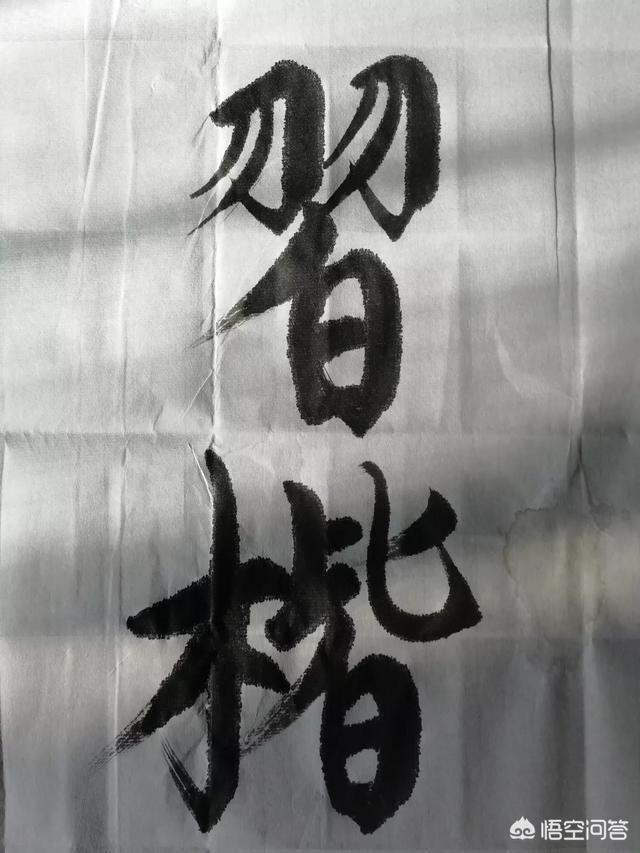 習
楷
悟空问答